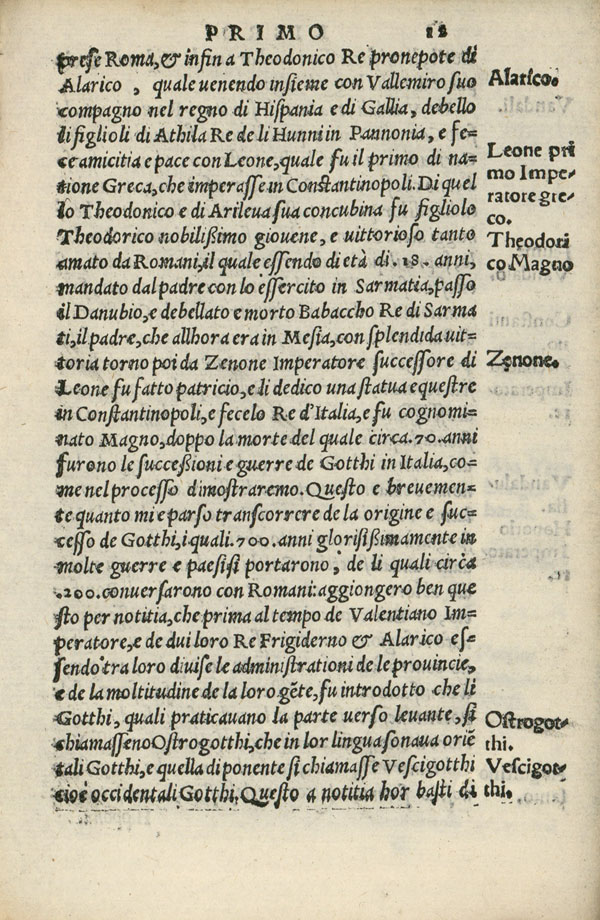 PRIMO 12
prese Roma, & infin a Theodonico Re pronepote di
Alarico, quale uenendo insieme con Vallemiro suo
compagno nel regno di Hispania e di Gallia, debello
li figlioli di Athila Re de li Hunni in Pannonia, e fe=
ce amicitia e pace con Leone, quale fu il primo di na=
tione Greca, che imperasse in Constantinopoli. Di quel
lo Theodonico e di Arileua sua concubina fu figliolo
Theodorico nobilißimo giouene, e uittorioso tanto
amato da Romani, il quale essendo di età di .18. anni,
mandato dal padre con lo essercito in Sarmatia, passo
il Danubio, e debellato e morto Babaccho Re di Sarma
ti, il padre, che allhora era in Mesia, con splendida uit=
toria torno poi da Zenone Imperatore successore di
Leone fu fatto patricio, e li dedico una statua equestre
in Constantinopoli, e fecelo Re d'Italia, e fu cognomi=
nato Magno, doppo la morte del quale circa .70. anni
furono le successioni e guerre de Gotthi in Italia, co=
me nel processo dimostraremo. Questo e breuemen=
te quanto mi e parso transcorrere de la origine e suc=
cesso de Gotthi, i quali .700. anni glorisißimamente in
molte guerre e paesi si portarono, de li quali circa
.200. conuersarono con Romani: aggiongero ben que
sto per notitia, che prima al tempo de Valentiano Im=
peratore, e de dui loro Re Frigiderno & Alarico es=
sendo tra loro diuise le administrationi de le prouincie,
e de la moltitudine de la loro gẽte, fu introdotto che li
Gotthi, quali praticauano la parte uerso leuante, si
chiamasseno Ostrogotthi, che in lor lingua sonaua oriẽ
tali Gotthi, e quella di ponente si chiamasse Vescigotthi
cioè occidentali Gotthi. Questo a notitia hor basti di
Alarico.
Leone pri
mo Impe=
ratore gre=
co.
Theodori
co Magno
Zenone.
Ostrogot=
thi.
Vescigot=
thi.